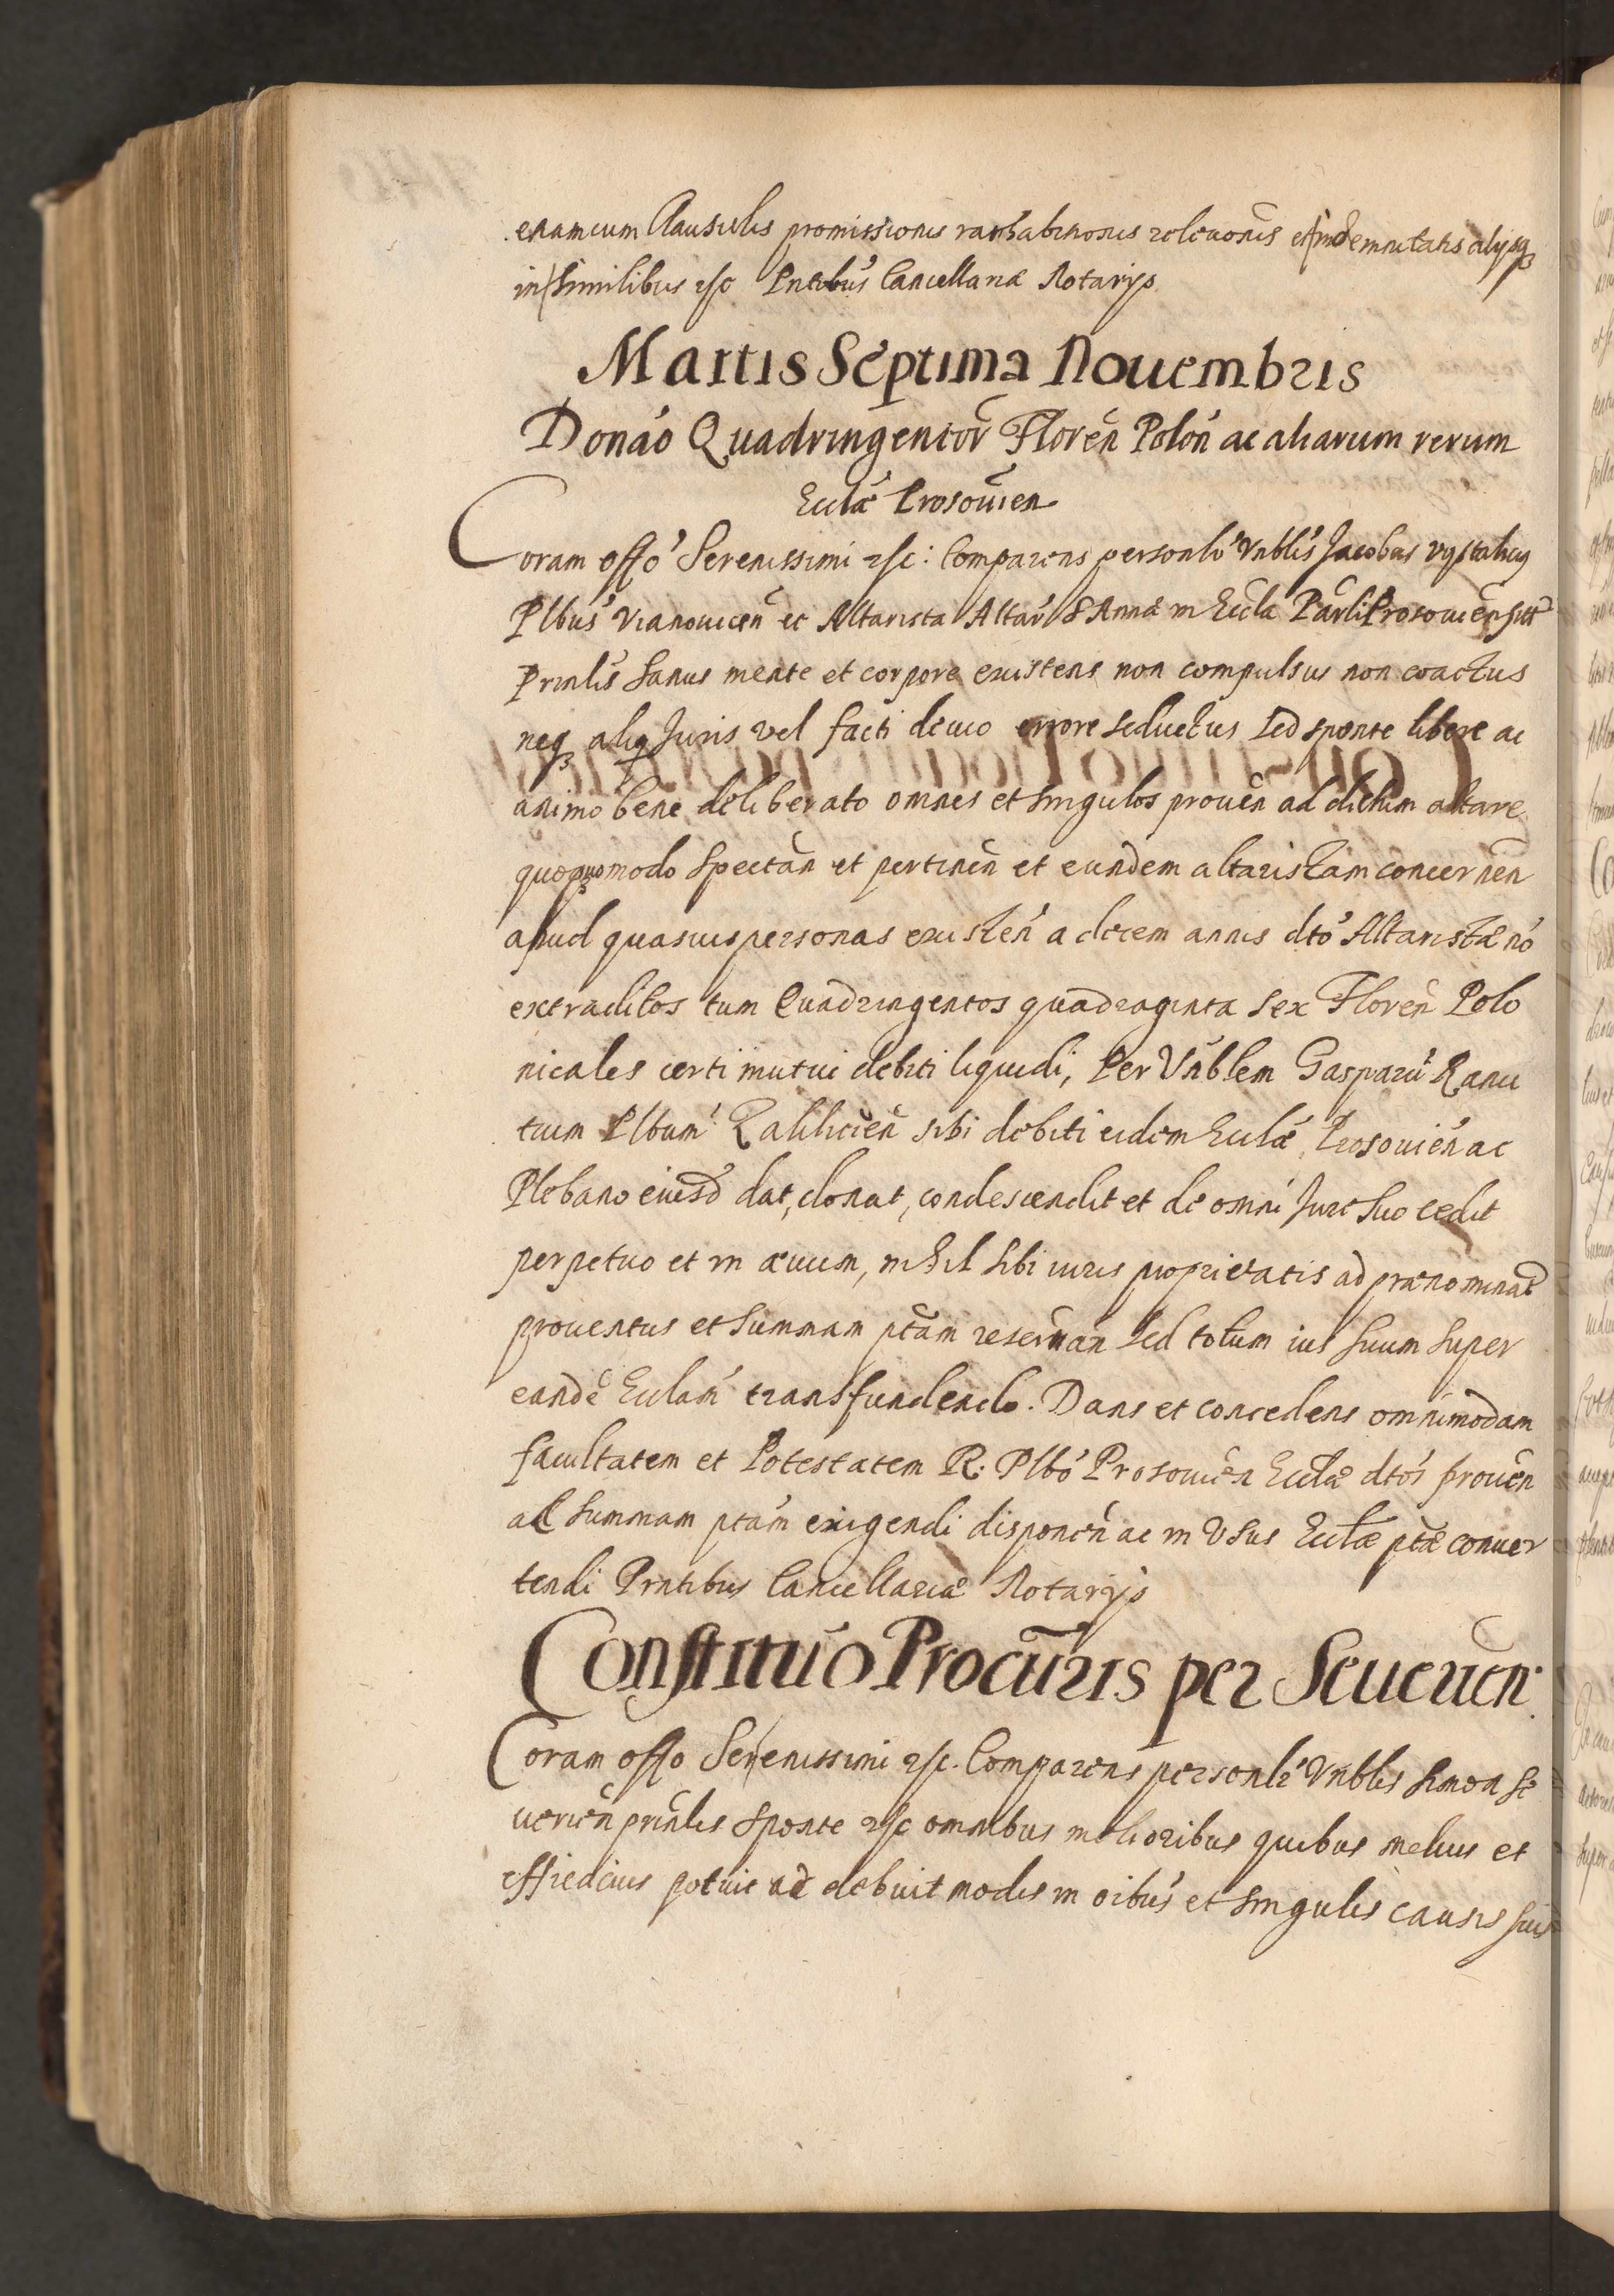 etiam cum Clausulis promissionis ratihabitionis releuonis et indemnitatis alijsq
in similibus etc Pntibus Cancellariæ Notarijs
Martis Septima Nouembris
Donao Quadringentor Floren Polon ac aliarum rerum
Ecclæ Prosouien
Coram offo Serenissimi etc: Comparens personlr Vnblis Jacobus
Plbus Vianouicen et Altarista Altaris S Annæ in Eccla Parli Prosouien
Prinlis sanus mente et corpore existens non compulsus non coactus
neq aliq Juris vel facti deuio errore seductus sed sponte libere ac
animo bene deliberato omnes et singulos prouen ad dictum altare
quoquomodo spectan et pertinen et eundem altaristam concernen
apud quasuis personas existen a decem annis dto Altaristæ no
extraditos tum Quadringentos quadraginta sex Floren Polo
nicales certi mutui debiti liquidi, Per Vnblem Gasparu Ranu
tium Plbum sibi debiti eidem Ecclæ Prosouien ac
Plebano eiusd dat, donat, condescendit et de omni Jure suo cedit
perpetuo et in æuum, nihil sibi iuris proprietatis ad prænominat
prouentus et summam ptam reseruan sed totum ius suum super
eande Ecclam transfundendo. Dans et concedens omnimodam
facultatem et Potestatem R. Plbo Prosouien Ecclæ dtos prouen
ac summam ptam exigendi disponen ac in Vsus Ecclæ ptæ conuer
tendi Prntibus Cancellariæ Notarijs
Constituo Procuris per Seuerien
Coram offo Serenissimi etc. Comparens personlr Vnblis Simon Se
uerien prinlis sponte etc omnibus melioribus quibus melius et
efficacius potuit ac debuit modis in oibus et singulis causis suis